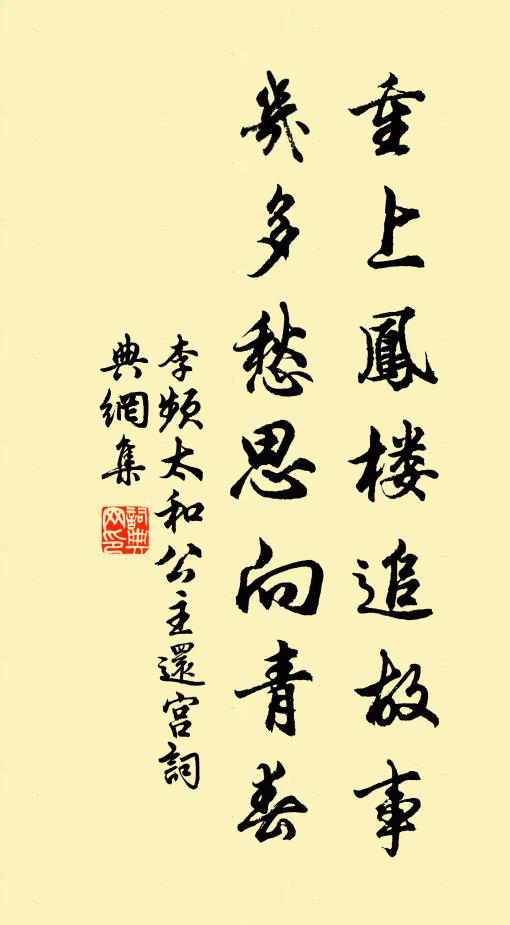 重上鳳楼追故事
幾多愁思向青春
李頻太和公主還宮詞
典網集
詞典
网印